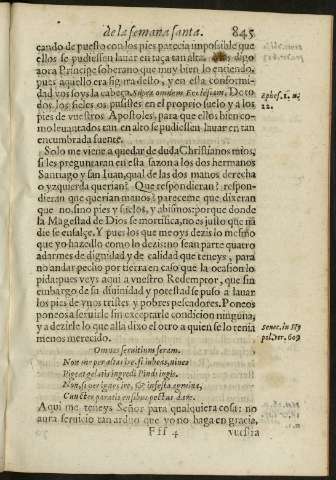 de la semana santa. 845
cando de puesto con los pies parecia impossible que
ellos se pudiessen lauar en taça tan alta. digo
aora Principe soberano que muy bien lo entiendo,
pues aquello era figura desto, y en esta conformi-
dad vos soys la cabeça, Supra omnem Ecclesiam. De to
dos los cielos os pusistes en el proprio suelo y a los
pies de vuestros Apostoles, para que ellos bien co-
mo leuantados tan en alto se pudiessen lauar en tan
encumbrada fuente.
Ephes. 1. nu.
22.
Solo me viene a quedar de duda Christianos mios,
si les preguntaran en esta sazon a los dos hermanos
Santiago y san Iuan, qual de las dos manos derecha
o yzquierda querian? Que respondieran? respon-
dieran que querian manos? pareceme que dixeran
que no, sino pies y suelos, y abismos: porque donde
la Magestad de Dios se mortifica, no es justo que na
die se ensalçe. Y pues los que me oys dezis lo mesmo
que yo hazedlo como lo dezis: no sean parte quatro
adarmes de dignidad y de calidad que teneys, para
no andar pecho por tierra en caso que la ocasion lo
pida: pues veys aqui a vuestro Redemptor, que sin
embargo de su diuinidad y potestad se puso a lauar
los pies de vnos tristes y pobres pescadores. Poneos
poneos a seruirle sin exceptarle condicion ninguna,
y a dezirle lo que alla dixo el otro a quien se lo tenia
menos merecido.
senec. in Hyp
pol. ver. 609
Omne seruitium feram.
Non me per altas ire, si iubeas, niues
Pigeat gelatis ingredi Pindi iugis.
Non, si per ignes ire, & infesta agmina,
Cuncter paratis ensibus pectus dare.
Aqui me teneys Señor para qualquiera cosa: no
aura seruicio tan arduo que yo no haga en gracia,
Fff 4 vuestra